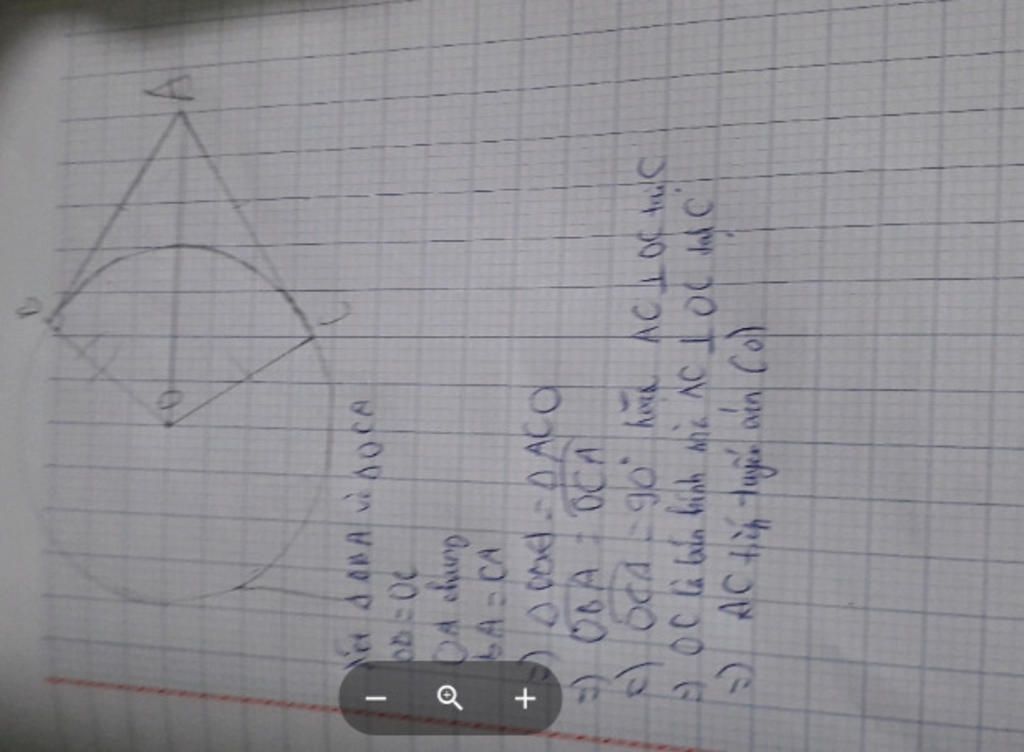 A
B
C
O
Xét Δ OBA và Δ OCA
OB = OC
OA chung
BA = CA
=) Δ OBA = Δ ACO
=) OBA = OCA
=) OCA = 90° hay AC ⊥ OC tại C
=) OC là bán kính mà AC ⊥ OC tại C
=) AC tiếp tuyến của (O)